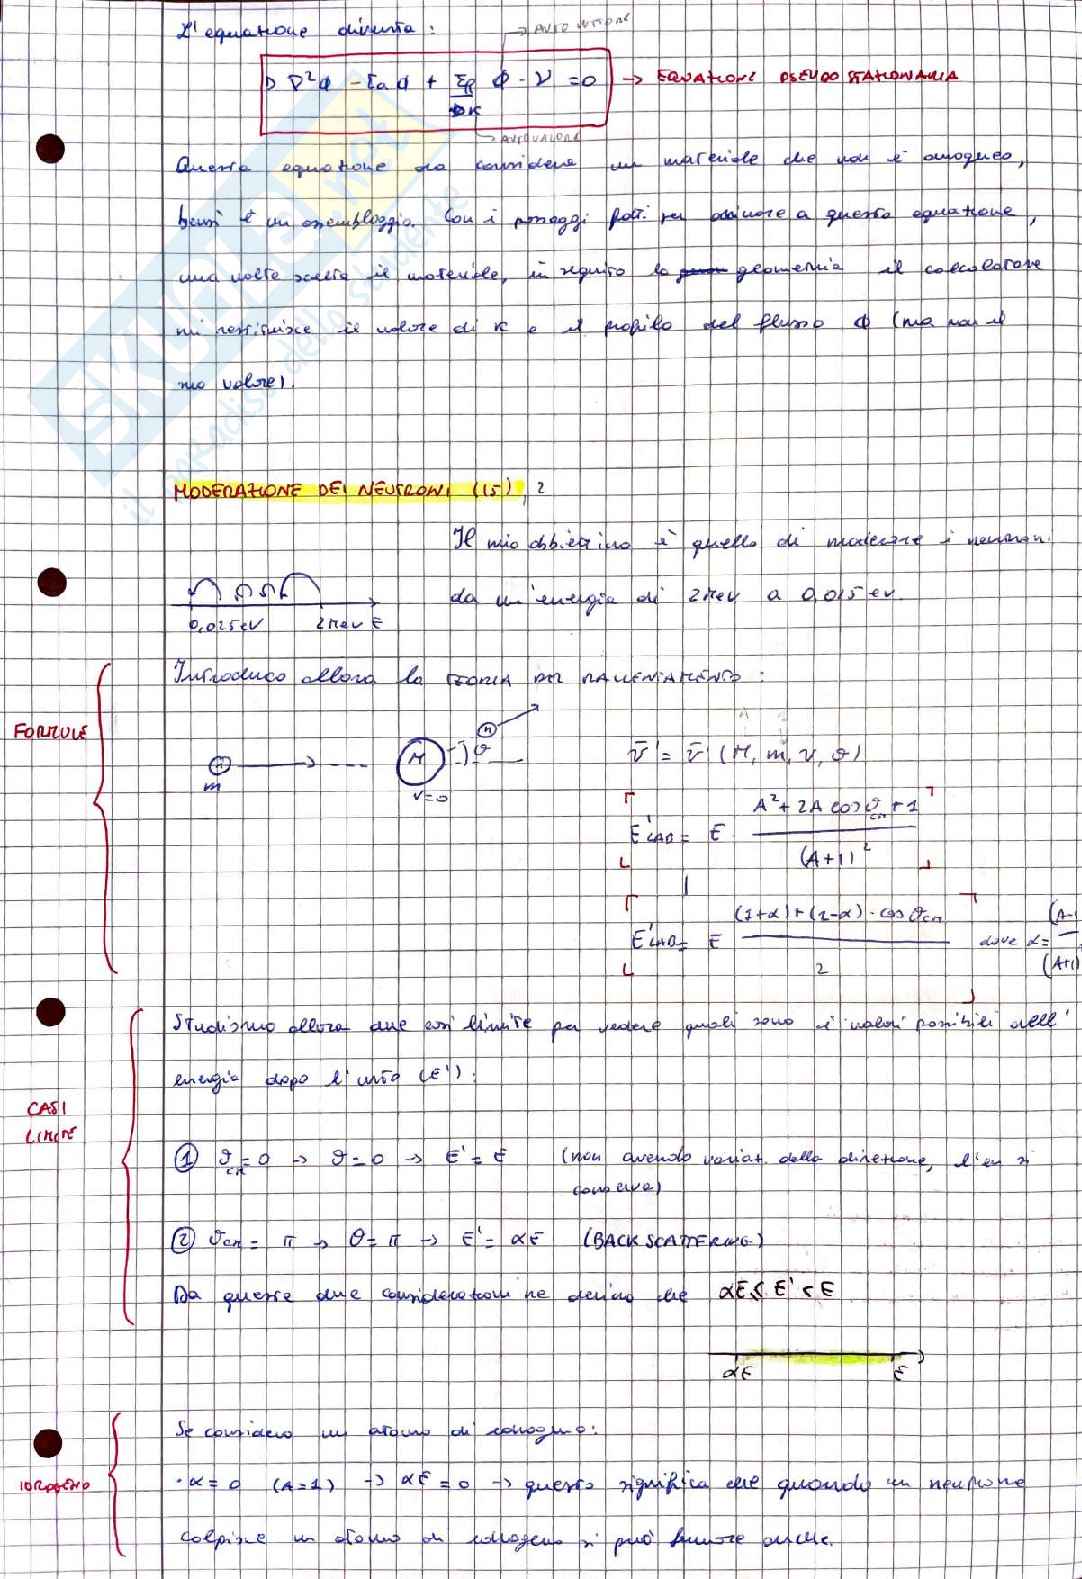 L'equazione diventa:
→ AUTOFUNZIONE
D ∇²ϕ - Σa ϕ + Σf/K ϕ · ν = 0 → EQUAZIONE PSEUDO STAZIONARIA
→ AUTOVALORE
Questa equazione da considera un materiale che non è omogeneo,
bensì è un assemblaggio. Con i passaggi fatti per arrivare a questa equazione,
una volta scelto il materiale, in seguito la geometria il calcolatore
mi restituisce il valore di K e il profilo del flusso ϕ (ma non il
suo valore).
SKUOLA.net
il paradiso dello studente
MODERAZIONE DEI NEUTRONI (15), 2
Il mio obbiettivo è quello di moderare i neutroni
da un'energia di 2 MeV a 0,025 eV.
0,025 eV 2 MeV E
Introduco allora la TEORIA DEL RALLENTAMENTO:
FORMULE
m M v=0 m ϑ
v̄' = v̄' (M, m, v, ϑ)
E'LAB = E (A² + 2A cos ϑcm + 1)/(A+1)²
E'LAB = E ((1+α)+(1-α)·cos ϑcm)/2 dove α= (A-/(A+1)
Studiamo allora due casi limite per vedere quali sono i valori possibili dell'
energia dopo l'urto (E'):
CASI
LIMITE
① ϑcm = 0 → ϑ = 0 → E' = E (non avendo variaz. della direzione, l'en si
conserva)
② ϑcm = π → ϑ = π → E' = αE (BACK SCATTERING)
Da queste due considerazioni ne deriva che αE ≤ E' ≤ E
αE E
Se considero un atomo di idrogeno:
IDROGENO
· α = 0 (A=1) → αE = 0 → questo significa che quando un neutrone
colpisce un atomo di idrogeno si può fermare anche.